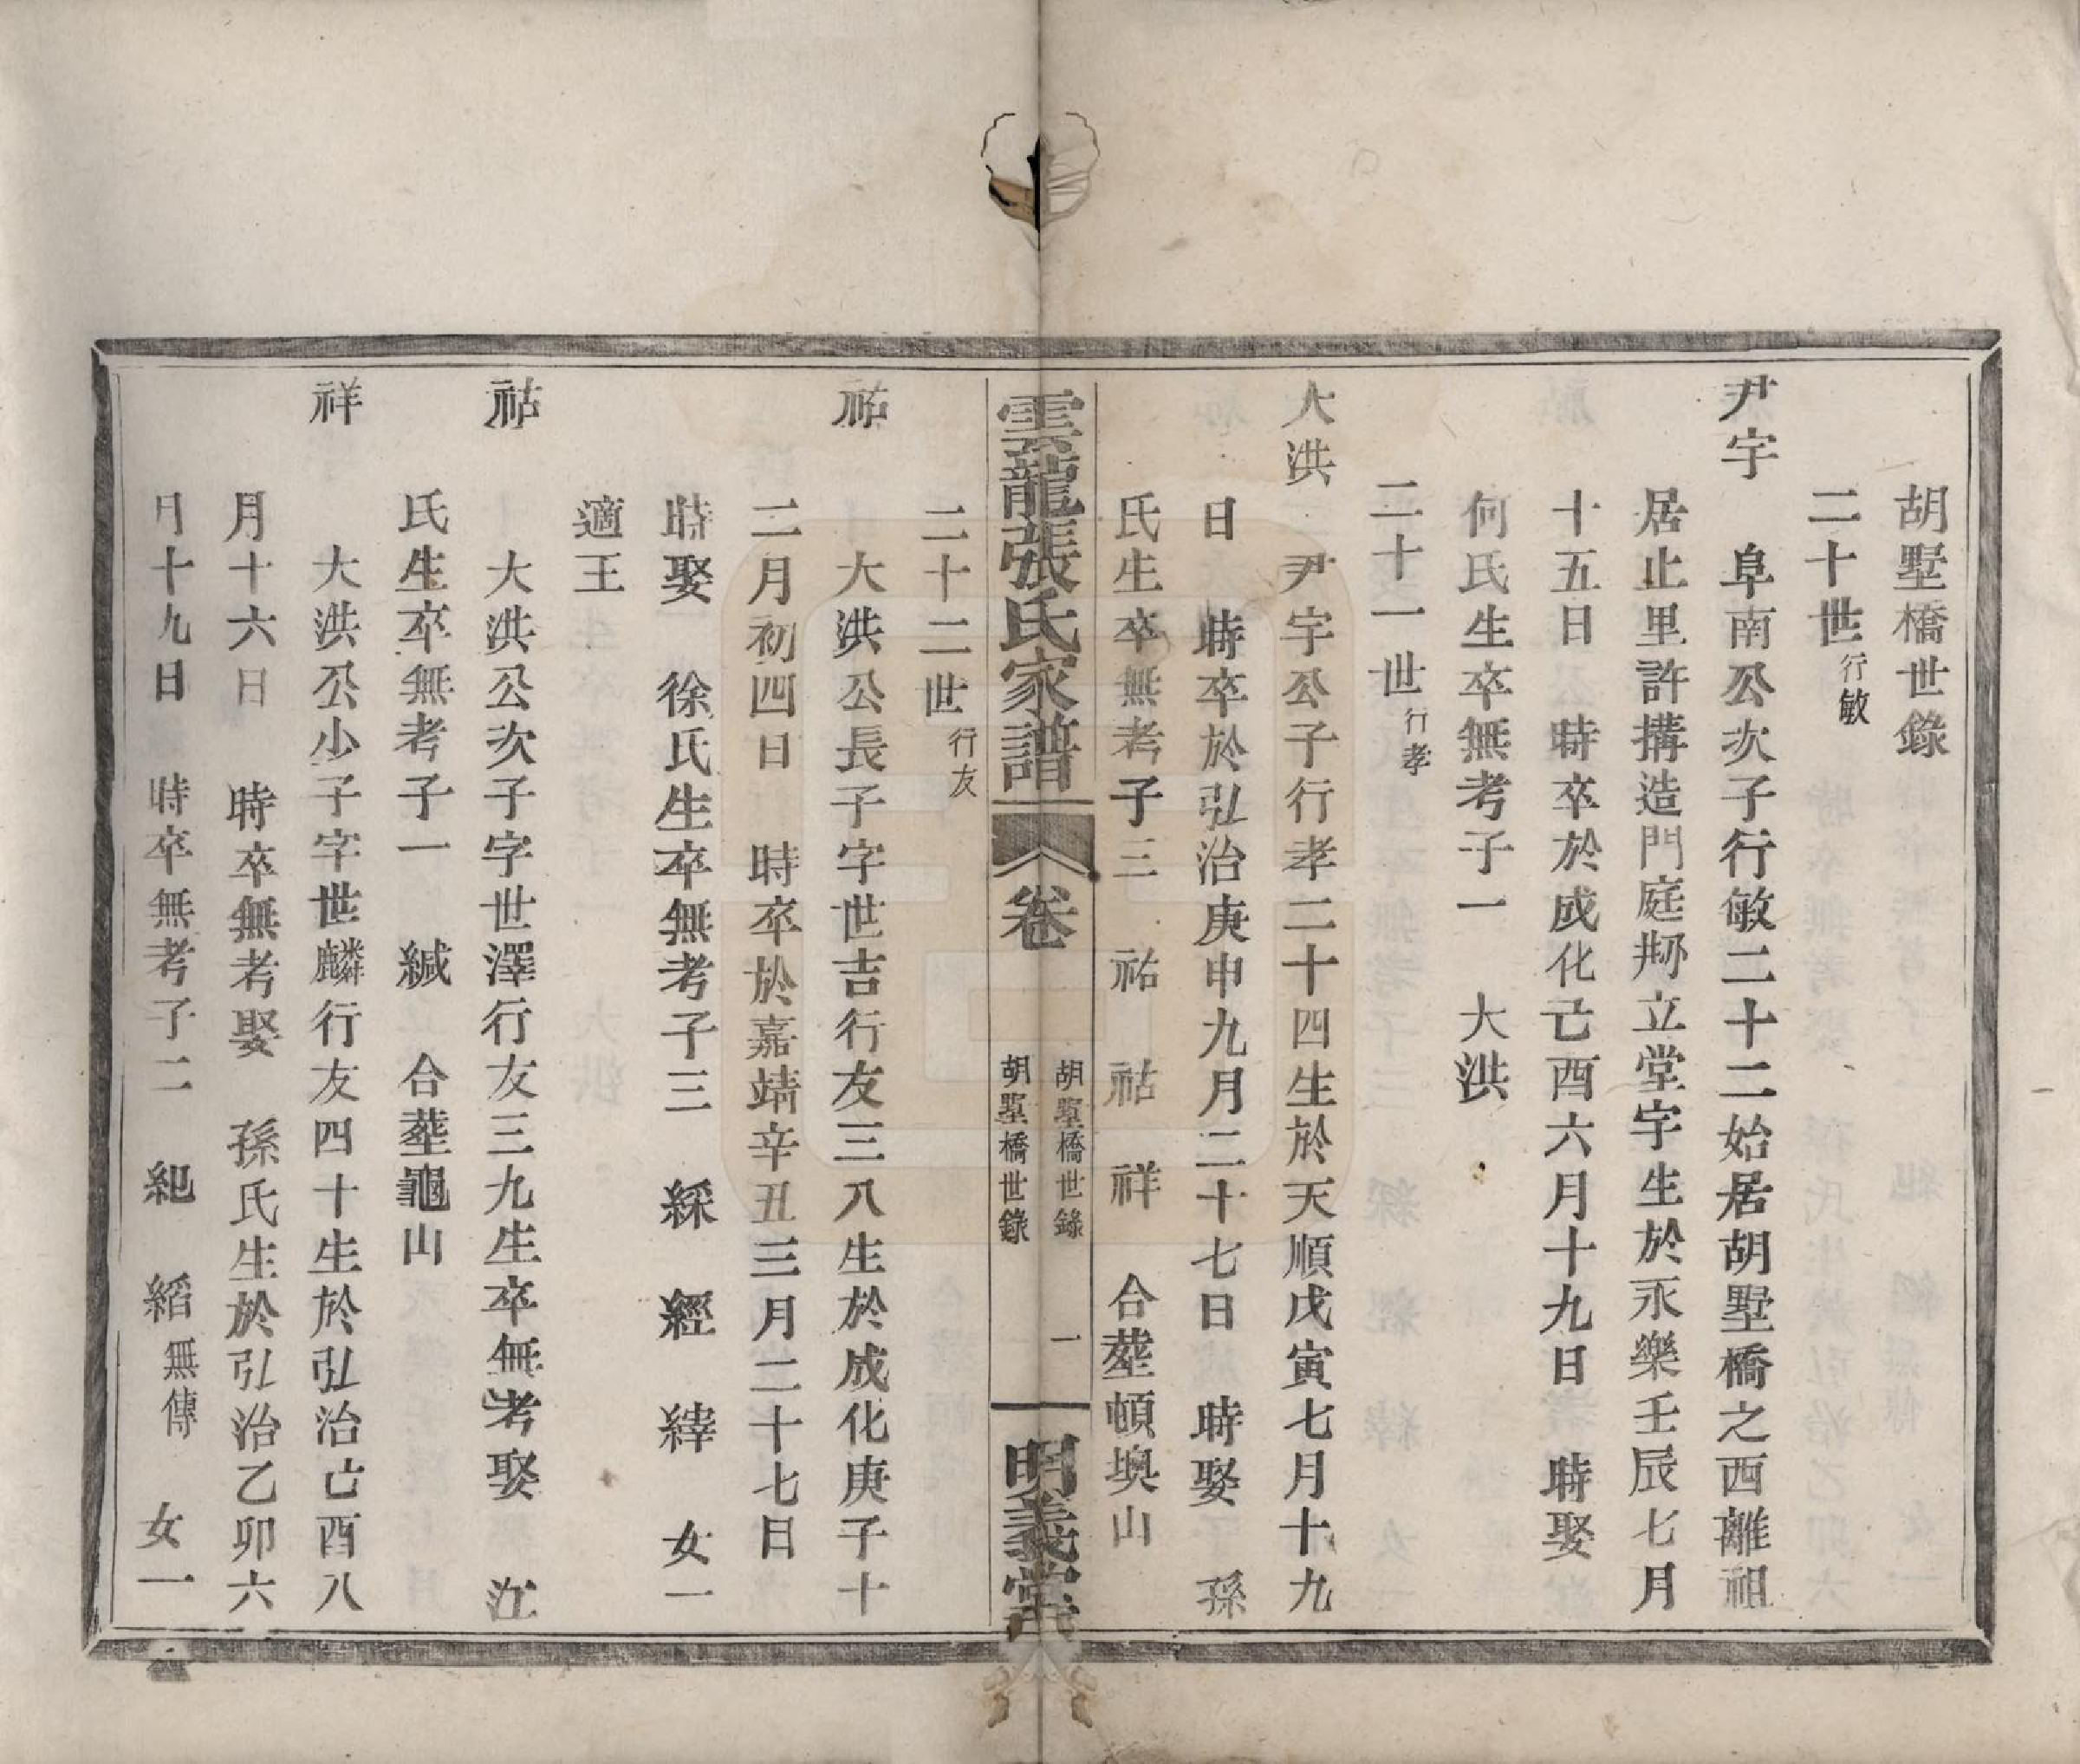 胡墅橋世錄
二十世行敏
尹宇　阜南公次子行敏二十二始居胡墅橋之西離祖
居止里許搆造門庭剏立堂宇生於永樂壬辰七月
十五日　時卒於成化己酉六月十九日　時娶
何氏生卒無考子一　大洪
二十一世行孝
大洪　尹宇公子行孝二十四生於天順戊寅七月十九
日　時卒於弘治庚申九月二十七日　時娶　孫
氏生卒無考子三　祐　祜　祥　合塟頓墺山
雲龍張氏家譜　卷　胡墅橋世錄　一　明義堂
胡墅橋世錄
二十二世行友
祐　大洪公長子字世吉行友三八生於成化庚子十
二月初四日　時卒於嘉靖辛丑三月二十七日
時娶　徐氏生卒無考子三　綵　經　緯　女一
適王
祜　大洪公次子字世澤行友三九生卒無考娶　江
氏生卒無考子一　緘　合塟龜山
祥　大洪公少子字世麟行友四十生於弘治己酉八
月十六日　時卒無考娶　孫氏生於弘治乙卯六
月十九日　時卒無考子二　紀　縚無傳　女一